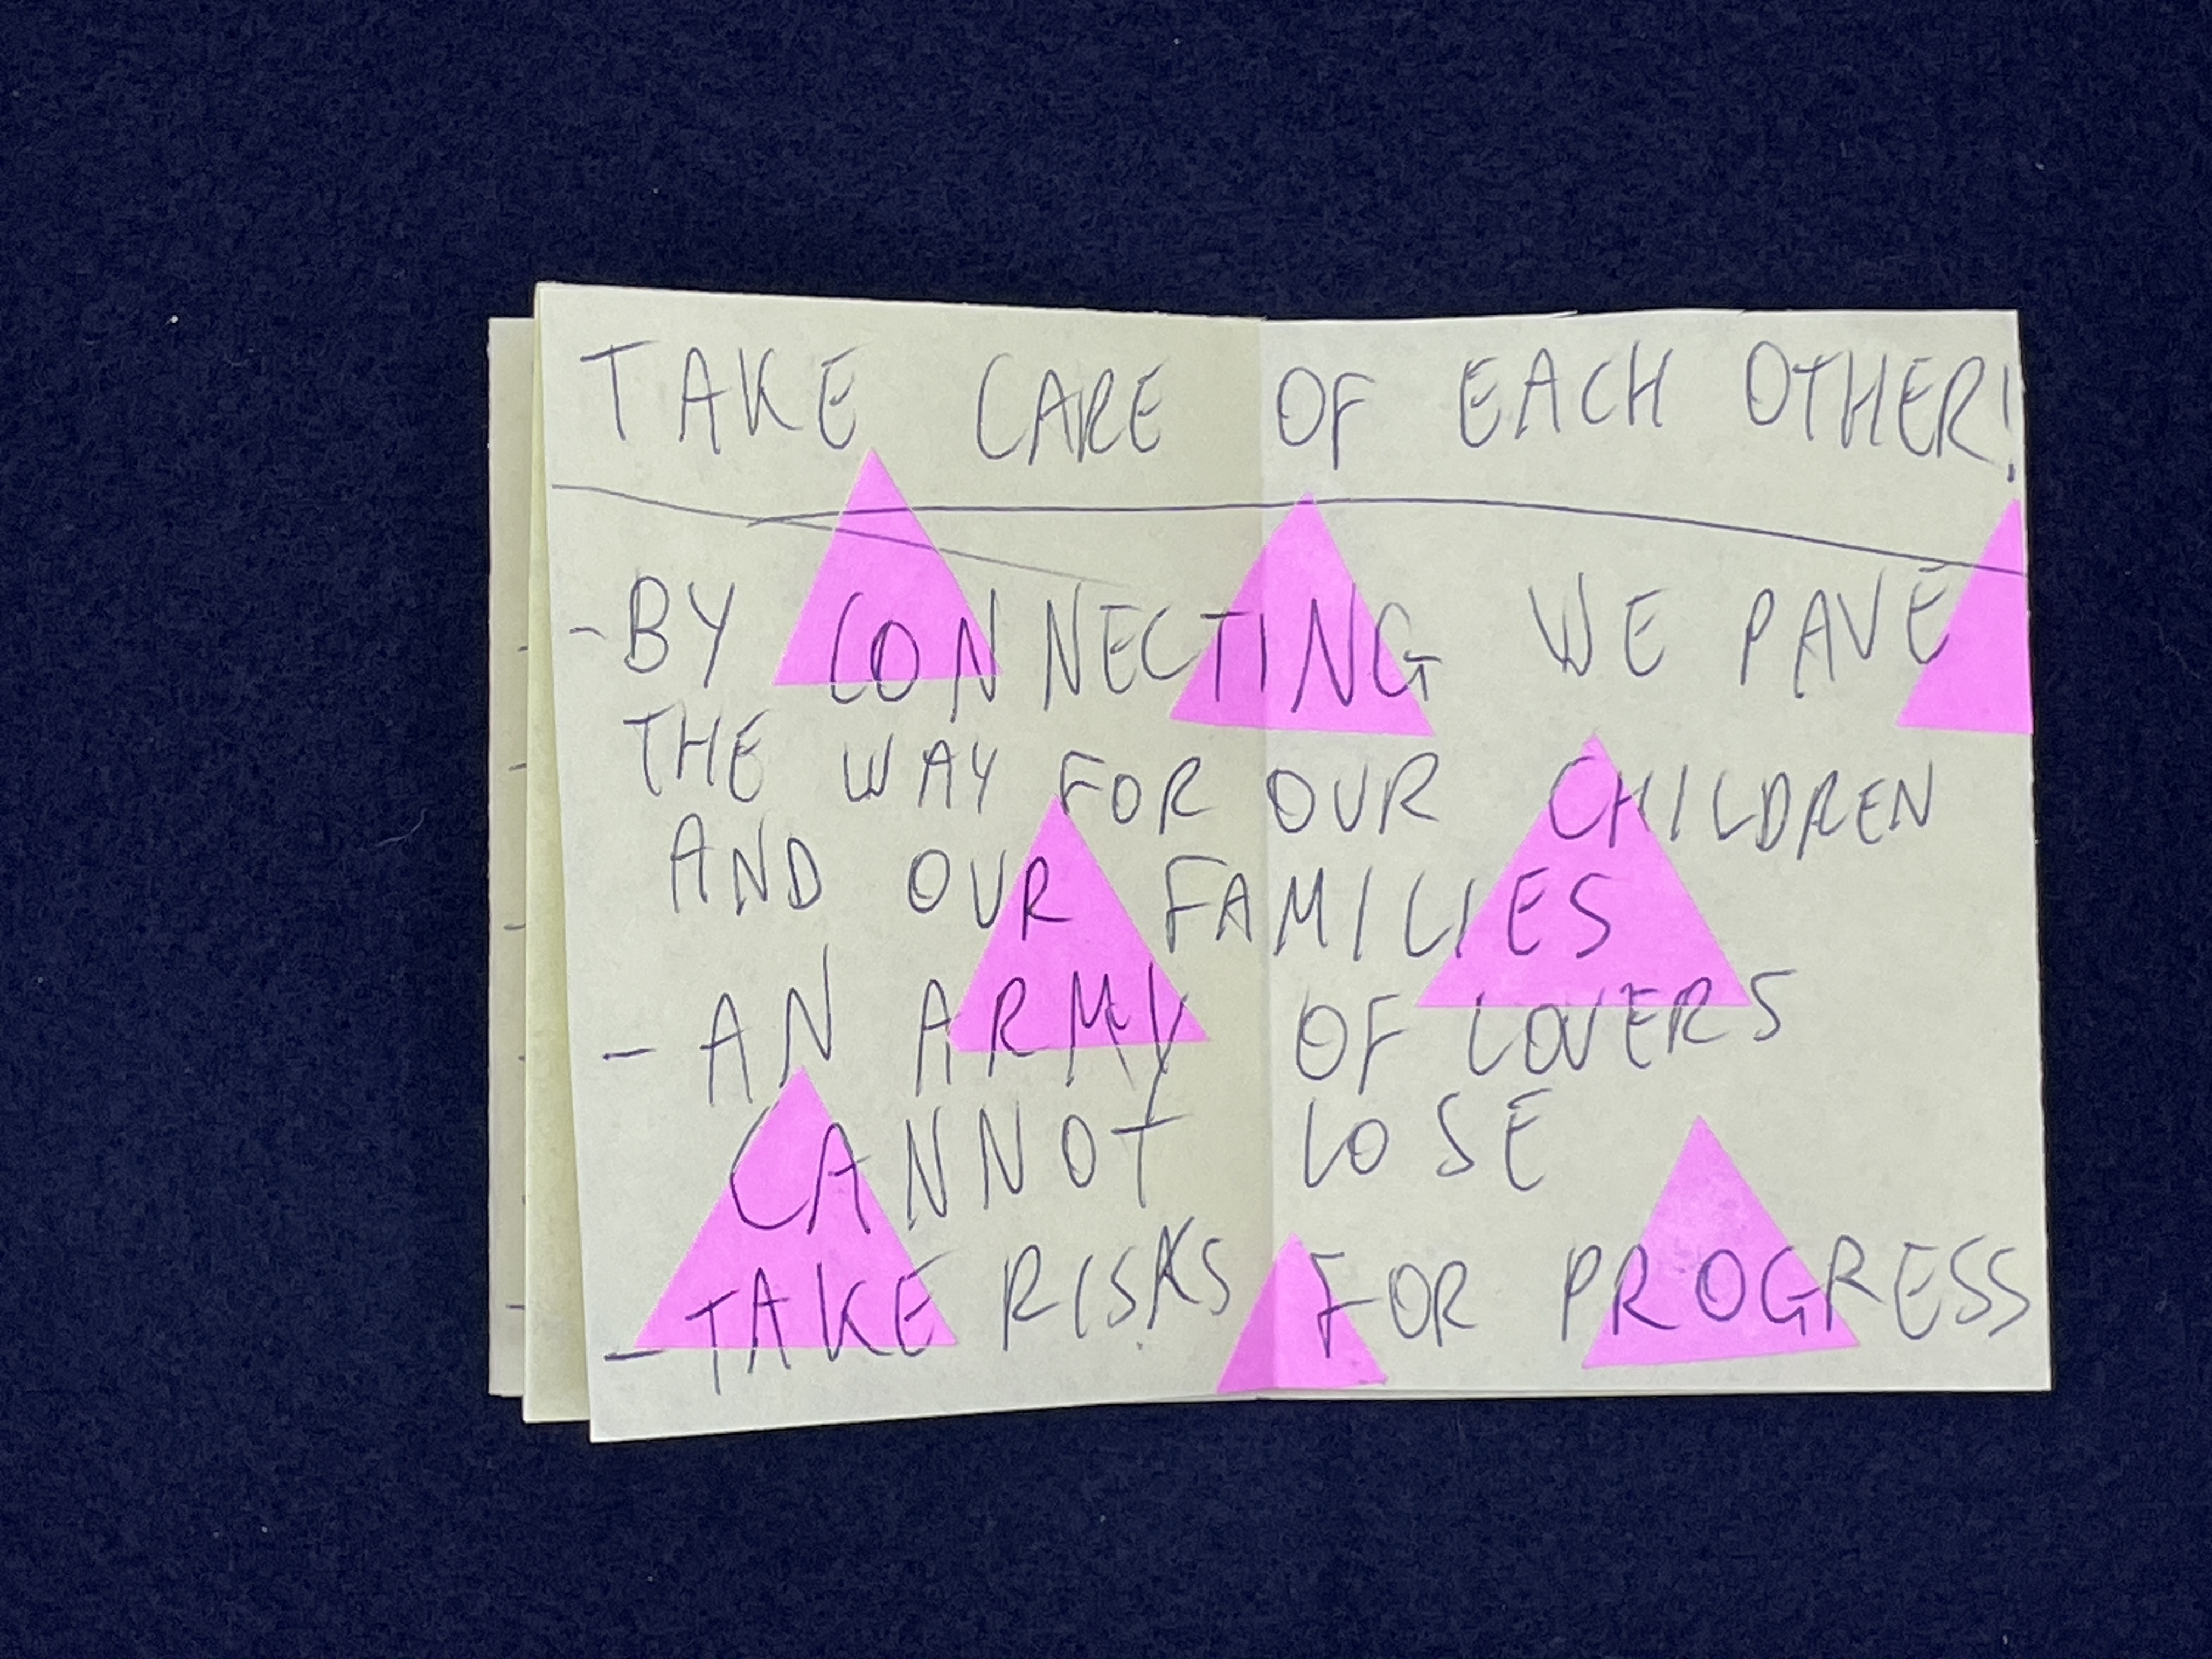 TAKE CARE OF EACH OTHER!
-BY CONNECTING WE PAVE
THE WAY FOR OUR CHILDREN
AND OUR FAMILIES
- AN ARMY OF LOVERS
CANNOT LOSE
- TAKE RISKS FOR PROGRESS